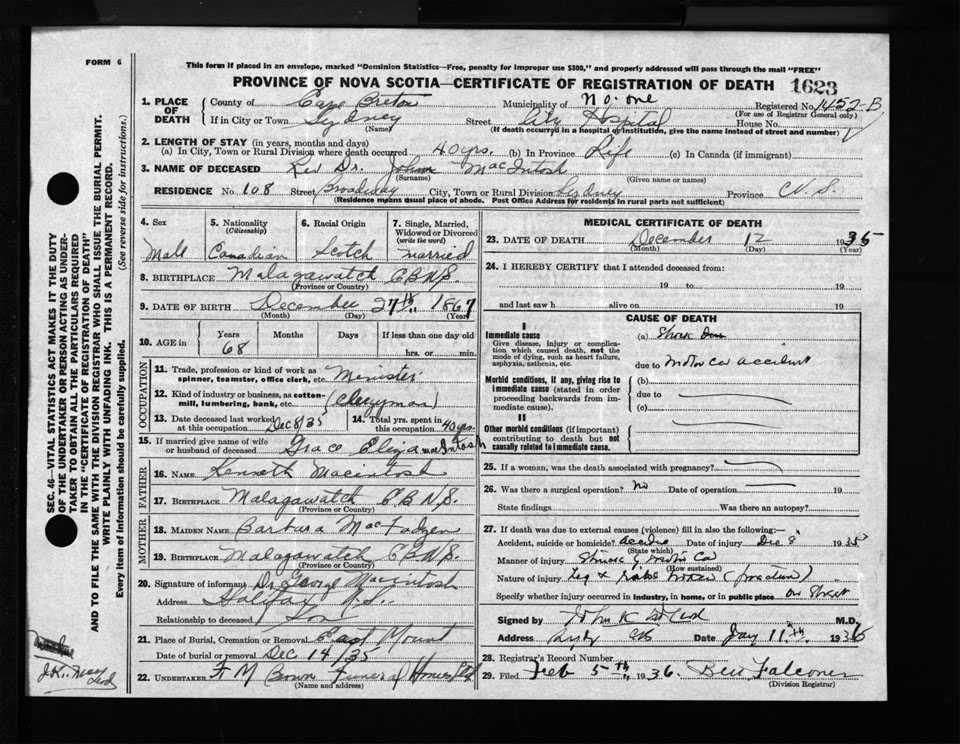 FORM 6
This form if placed in an envelope, marked "Dominion Statistics—Free, penalty for improper use $300," and properly addressed will pass through the mail "FREE"
PROVINCE OF NOVA SCOTIA—CERTIFICATE OF REGISTRATION OF DEATH 1623
1. PLACE OF DEATH
County of Cape Breton Municipality of No. one Registered No. 1452-B
(For use of Registrar General only)
If in City or Town Sydney Street City Hospital House No.
(Name) (If death occurred in a hospital or institution, give the name instead of street and number)
2. LENGTH OF STAY (in years, months and days)
(a) In City, Town or Rural Division where death occurred 40 yrs. (b) In Province Life (c) In Canada (if immigrant)
3. NAME OF DECEASED Rev Dr. John MacIntosh
(Surname) (Given name or names)
RESIDENCE No. 108 Street Broadway City, Town or Rural Division Sydney Province N.S.
(Residence means usual place of abode. Post Office Address for residents in rural parts not sufficient)
4. Sex
Male
5. Nationality
(Citizenship)
Canadian
6. Racial Origin
Scotch
7. Single, Married, Widowed or Divorced
(write the word)
married
8. BIRTHPLACE Malagawatch C.B.N.S.
(Province or Country)
9. DATE OF BIRTH December 27th 1867
(Month) (Day) (Year)
10. AGE in
Years Months Days If less than one day old
68 hrs. or min.
OCCUPATION
11. Trade, profession or kind of work as
spinner, teamster, office clerk, etc. Minister
12. Kind of industry or business, as cotton-
mill, lumbering, bank, etc. (Clergyman)
13. Date deceased last worked at this occupation Dec 8/35
14. Total yrs. spent in this occupation 40 yrs.
15. If married give name of wife
or husband of deceased Grace Eliza MacIntosh
FATHER
16. NAME Kenneth Macintosh
17. BIRTHPLACE Malagawatch C.B.N.S.
(Province or Country)
MOTHER
18. MAIDEN NAME Barbara MacFadgen
19. BIRTHPLACE Malagawatch C.B.N.S.
(Province or Country)
20. Signature of informant Dr. George Macintosh
Address Halifax N.S.
Relationship to deceased Son
21. Place of Burial, Cremation or Removal East Mount
Date of burial or removal Dec 14/35
22. UNDERTAKER F M Brown Funeral Homes Ltd
(Name and address)
MEDICAL CERTIFICATE OF DEATH
23. DATE OF DEATH December 12 1935
(Month) (Day) (Year)
24. I HEREBY CERTIFY that I attended deceased from:
19 to 19
and last saw h alive on 19
CAUSE OF DEATH
I
Immediate cause
Give disease, injury or complication which caused death, not the mode of dying, such as heart failure, asphyxia, asthenia, etc.
(a) Shock
due to motor car accident
Morbid conditions, if any, giving rise to immediate cause (stated in order proceeding backwards from immediate cause).
(b)
due to
(c)
II
Other morbid conditions (if important) contributing to death but not causally related to immediate cause.
25. If a woman, was the death associated with pregnancy?
26. Was there a surgical operation? no Date of operation
State findings Was there an autopsy?
27. If death was due to external causes (violence) fill in also the following:—
Accident, suicide or homicide? Date of injury Dec 8 1935
(State which)
Manner of injury Struck by motor Car
(How sustained)
Nature of injury Leg & (fracture)
Specify whether injury occurred in industry, in home, or in public place on street
Signed by M.D.
Address Date Jany 11th 1936
28. Registrar's Record Number
29. Filed Feb 5th 1936 Ben Falconer
(Division Registrar)
SEC. 46—VITAL STATISTICS ACT MAKES IT THE DUTY
OF THE UNDERTAKER OR PERSON ACTING AS UNDER-
TAKER TO OBTAIN ALL THE PARTICULARS REQUIRED
IN THE "CERTIFICATE OF REGISTRATION OF DEATH"
AND TO FILE THE SAME WITH THE DIVISION REGISTRAR WHO SHALL ISSUE THE BURIAL PERMIT.
WRITE PLAINLY WITH UNFADING INK. THIS IS A PERMANENT RECORD.
Every item of information should be carefully supplied. (See reverse side for instructions.)